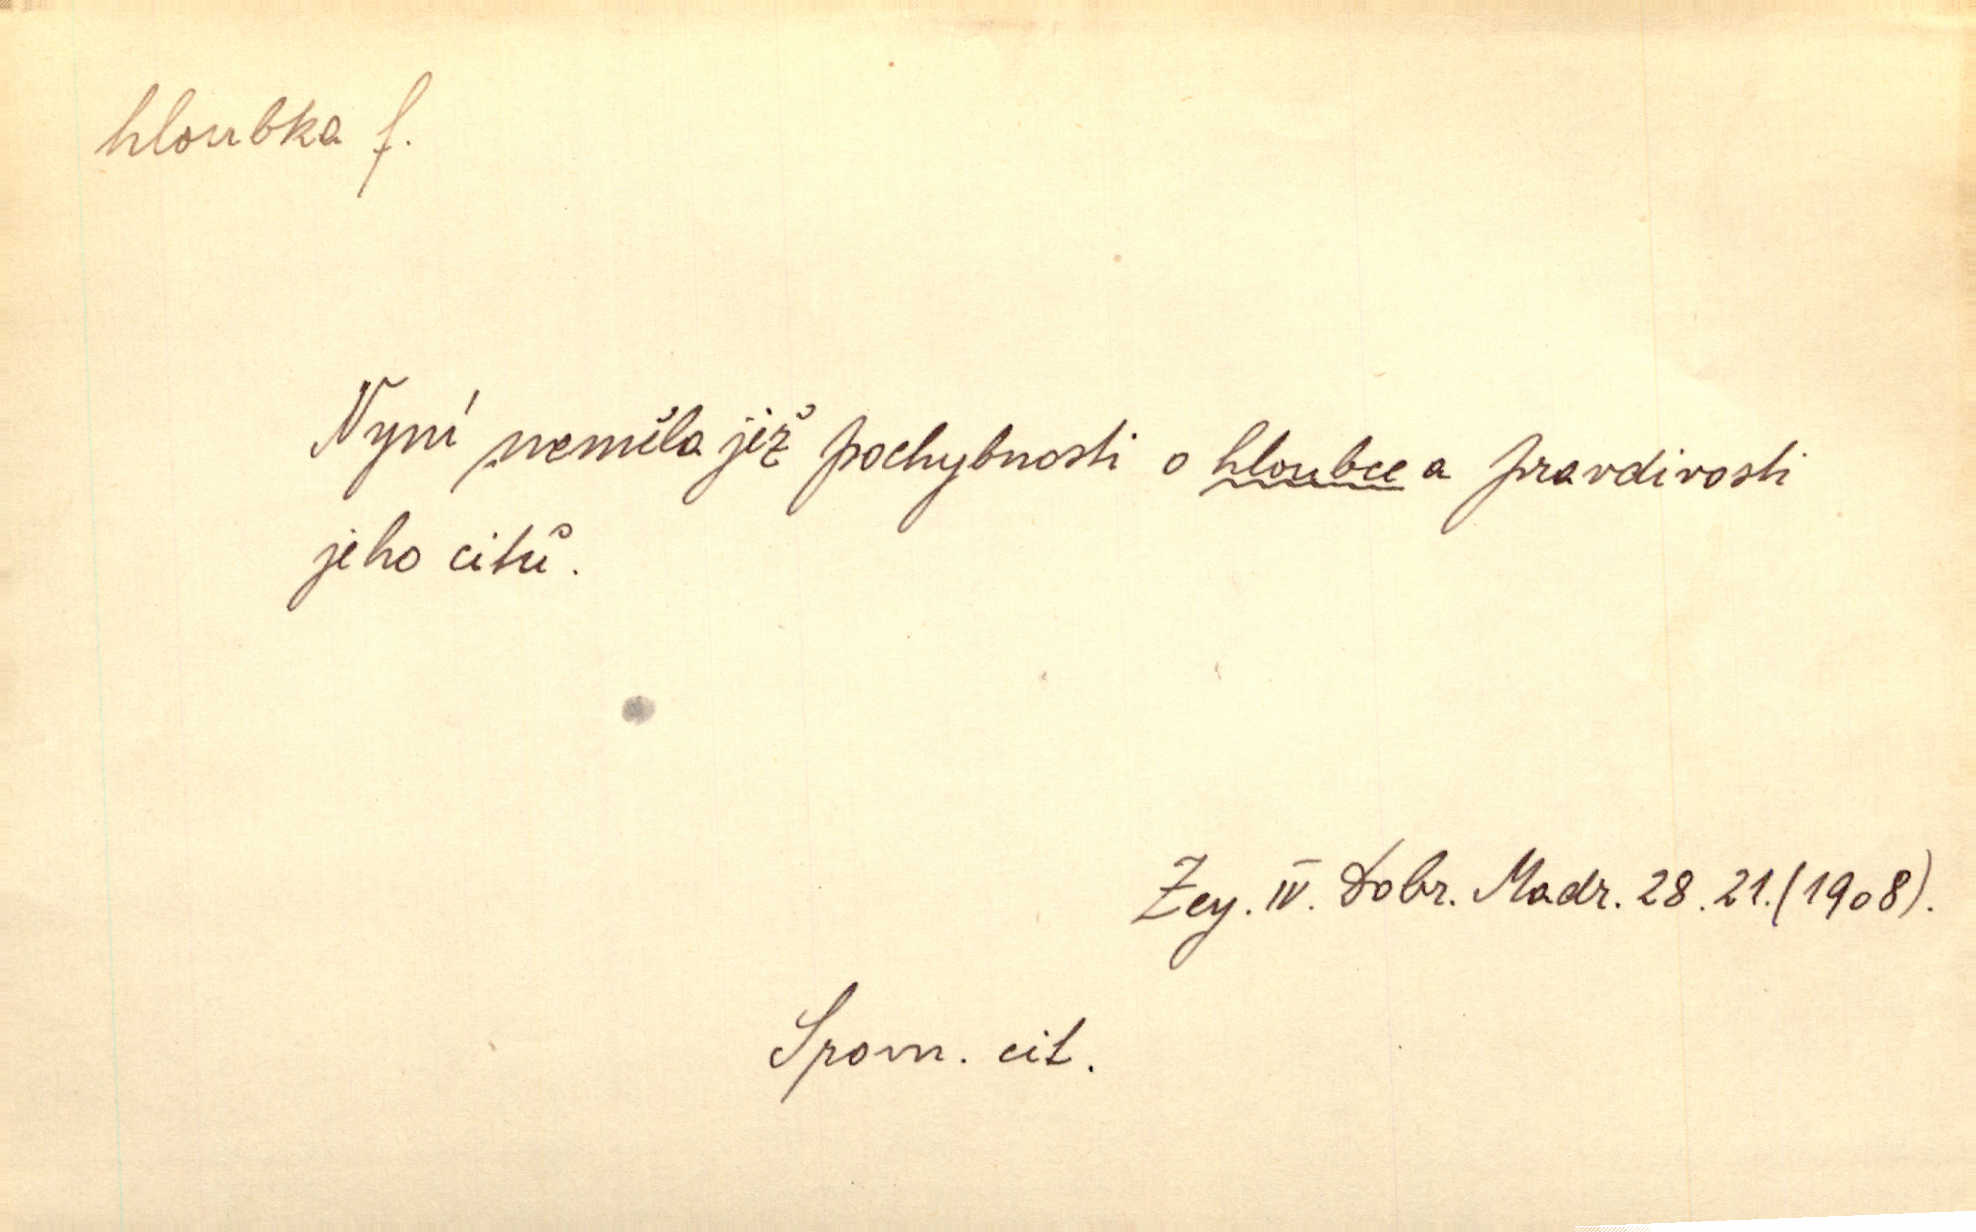 hloubka f.
Nyní neměla již pochybnosti o hloubce a pravdivosti
jeho citů.
Zey. IV. Dobr. Madr. 28. 21. (1908).
Srovn. cit.